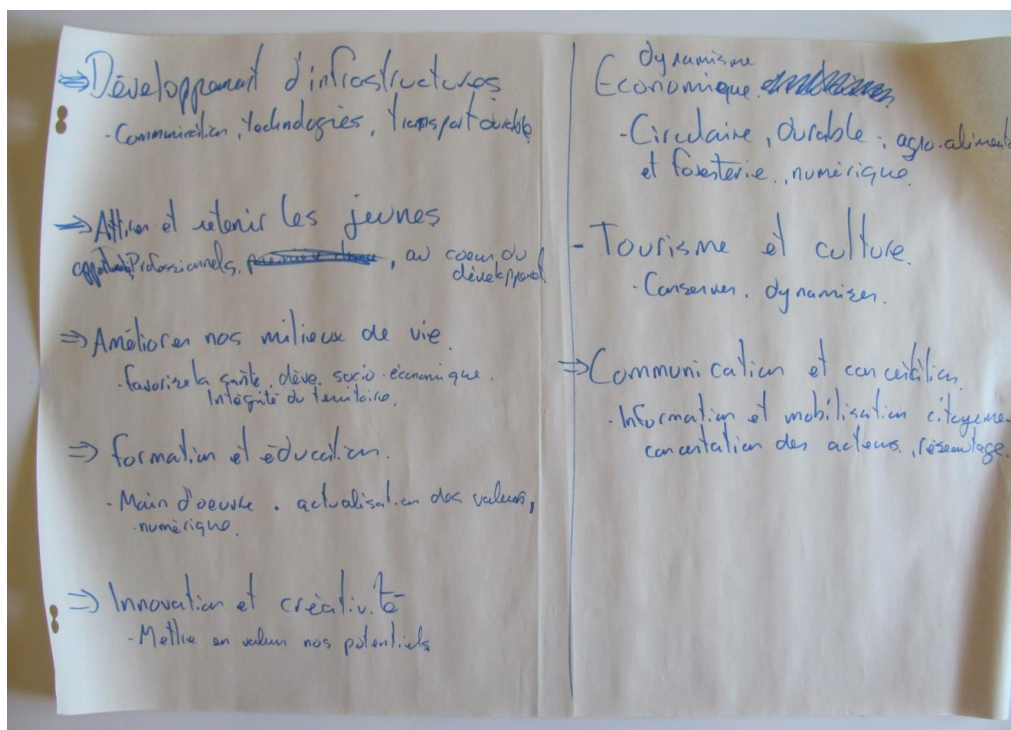 ⇒ Développement d'infrastructures
- Communication, technologies, transport durable
⇒ Attirer et retenir les jeunes
Professionnels, , au coeur du
développement
⇒ Améliorer nos milieux de vie.
- favorise la santé, déve. socio-économique.
Intégrité du territoire.
⇒ formation et éducation.
- Main d'oeuvre, actualisation des valeurs,
numérique.
⇒ Innovation et créativité
- Mettre en valeur nos potentiels
dynamisme
Economique
- Circulaire, durable, agro-aliment
et foresterie, numérique
- Tourisme et culture.
- Conserver, dynamiser.
⇒ Communication et concertation.
- Information et mobilisation citoyenne
concertation des acteurs, réseautage.